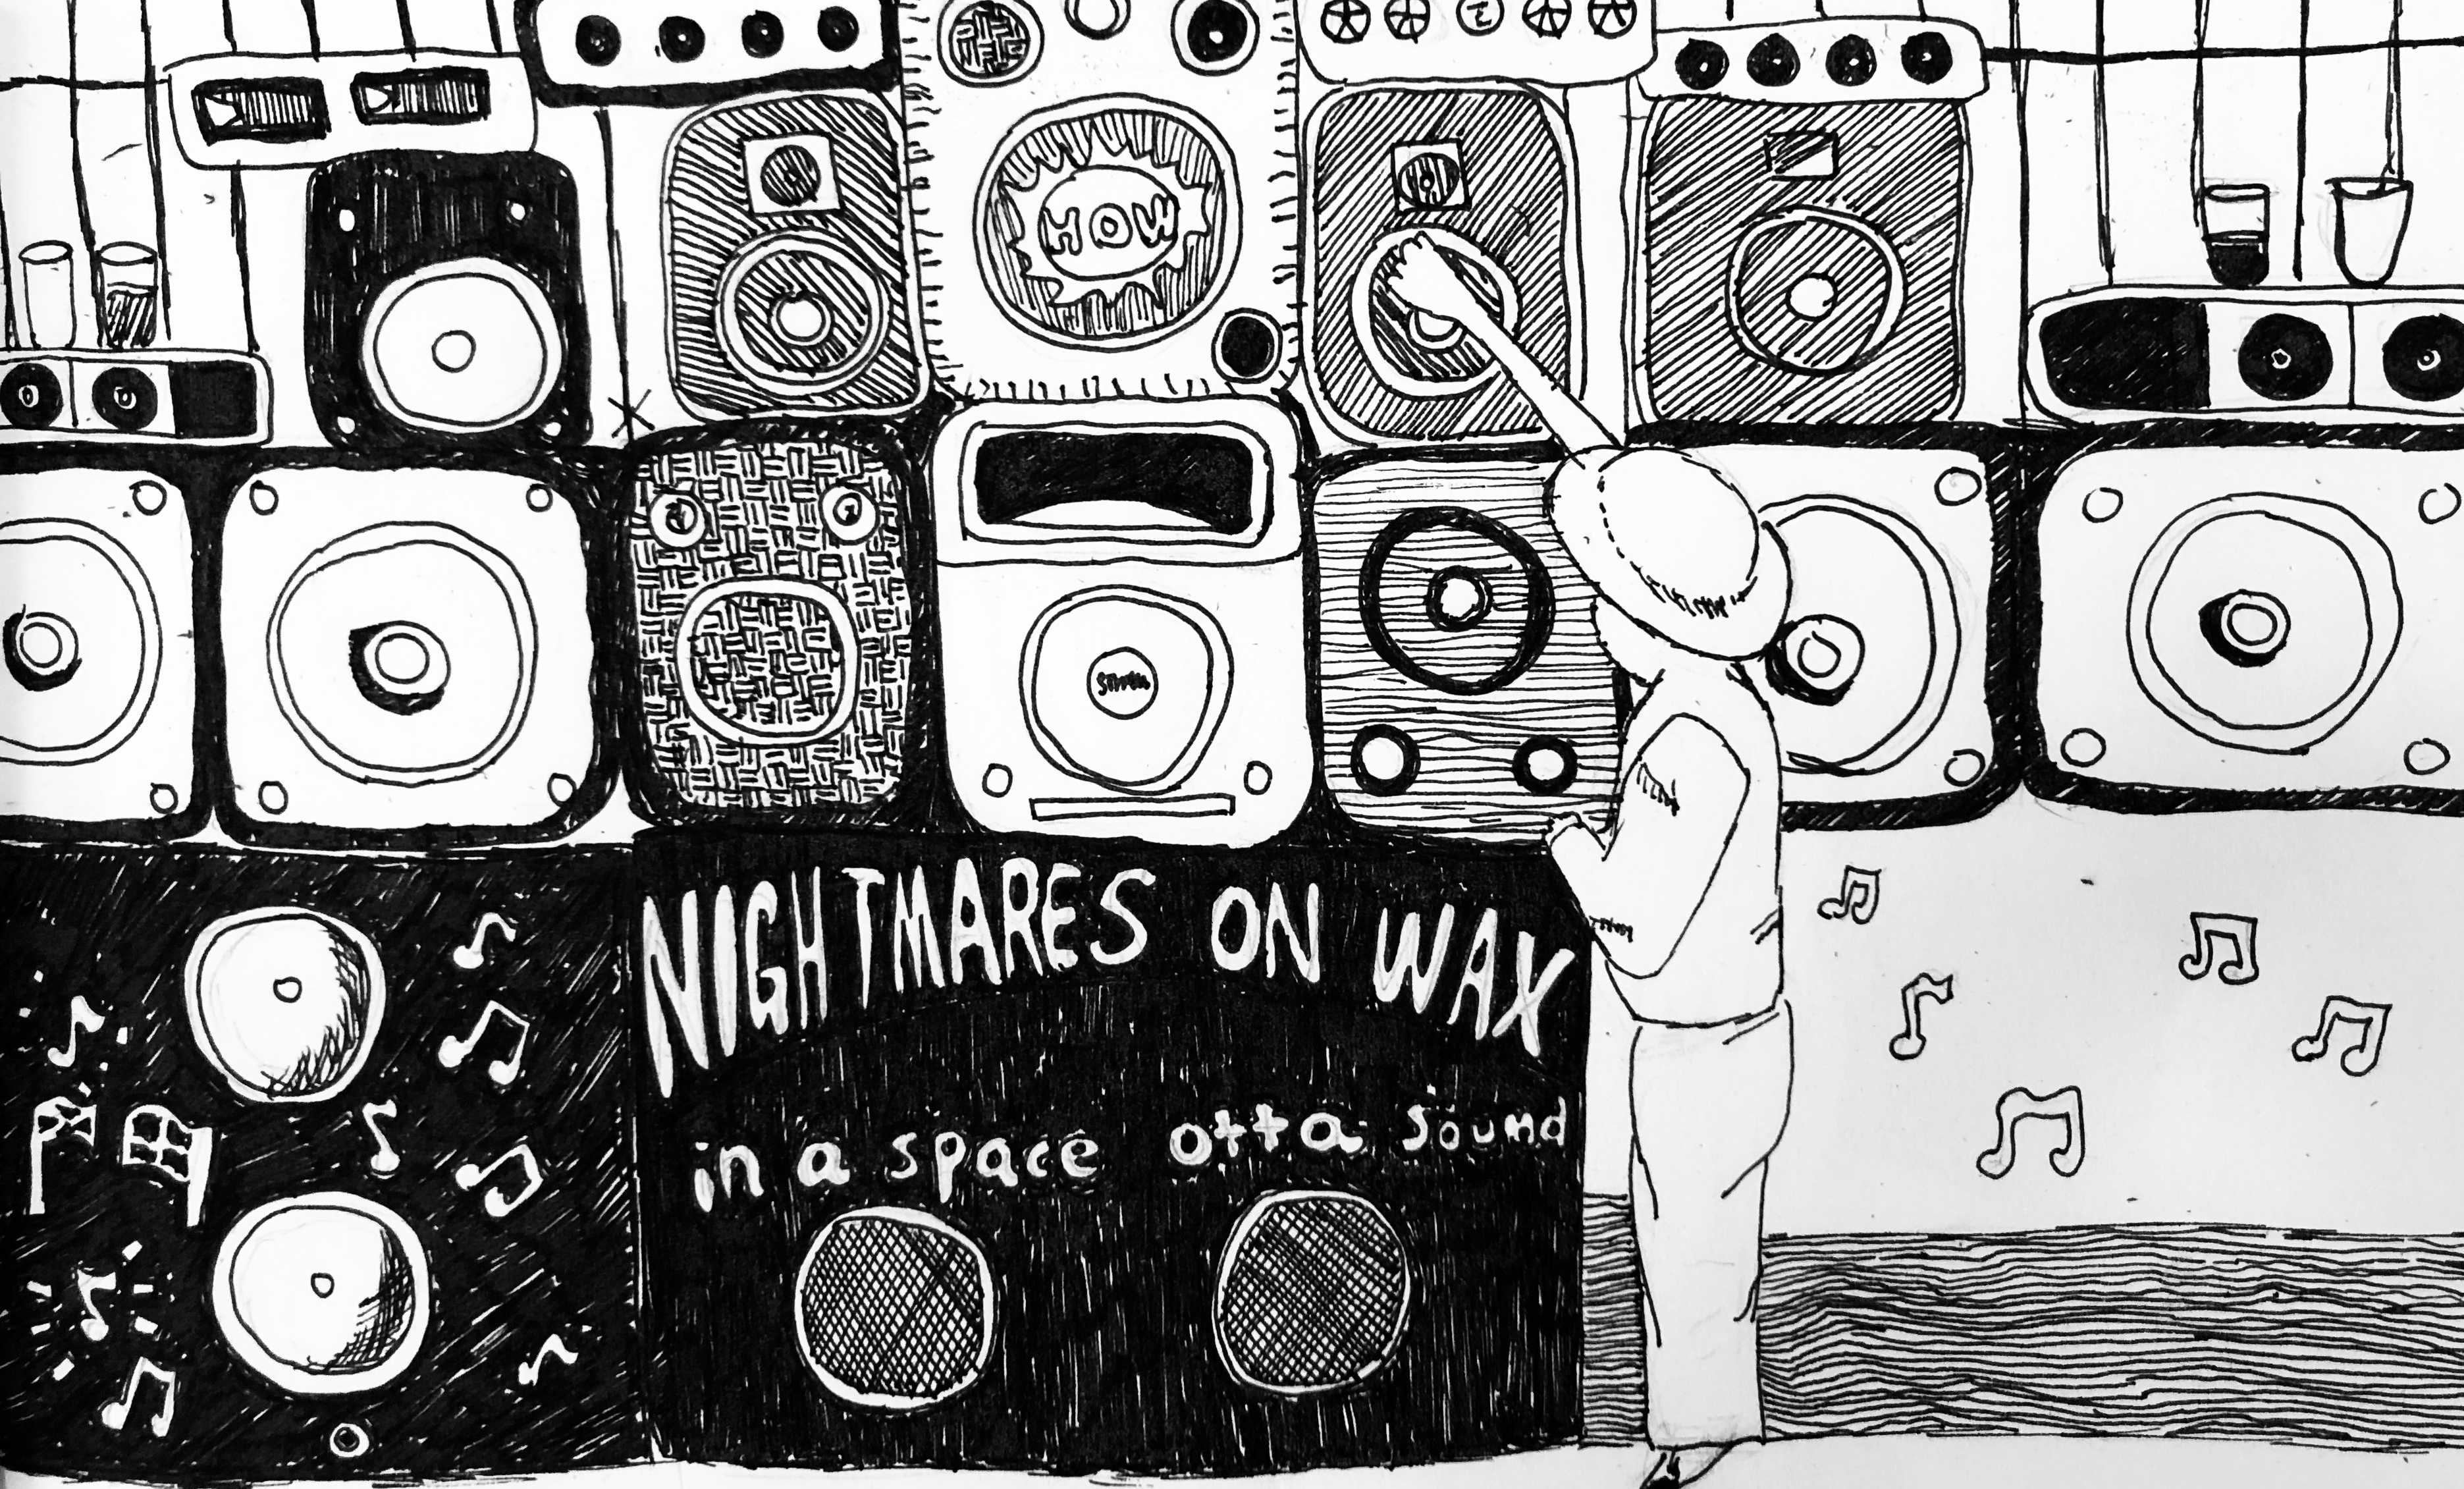 HOW
NIGHTMARES ON WAX
in a space otta sound